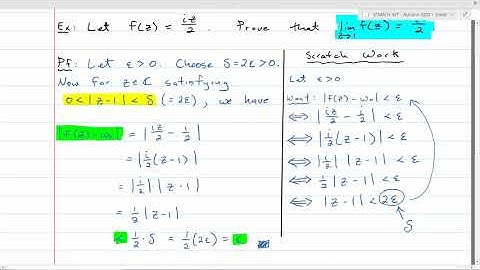 Ex: Let f(z) = iz/2. Prove that lim z→1 f(z) = i/2
Pf: Let ε>0. Choose δ=2ε>0.
Now for z∈ℂ satisfying
0<|z-1|<δ (=2ε), we have
|f(z)-w₀| = |iz/2 - i/2|
= |i/2 (z-1)|
= |i/2| |z-1|
= 1/2 |z-1|
< 1/2·δ = 1/2(2ε) = ε
Scratch Work
Let ε>0
Want: |f(z)-w₀|<ε
⟺ |iz/2 - i/2| < ε
⟺ |i/2(z-1)| < ε
⟺ |i/2| |z-1| < ε
⟺ 1/2 |z-1| < ε
⟺ |z-1| < 2ε
δ